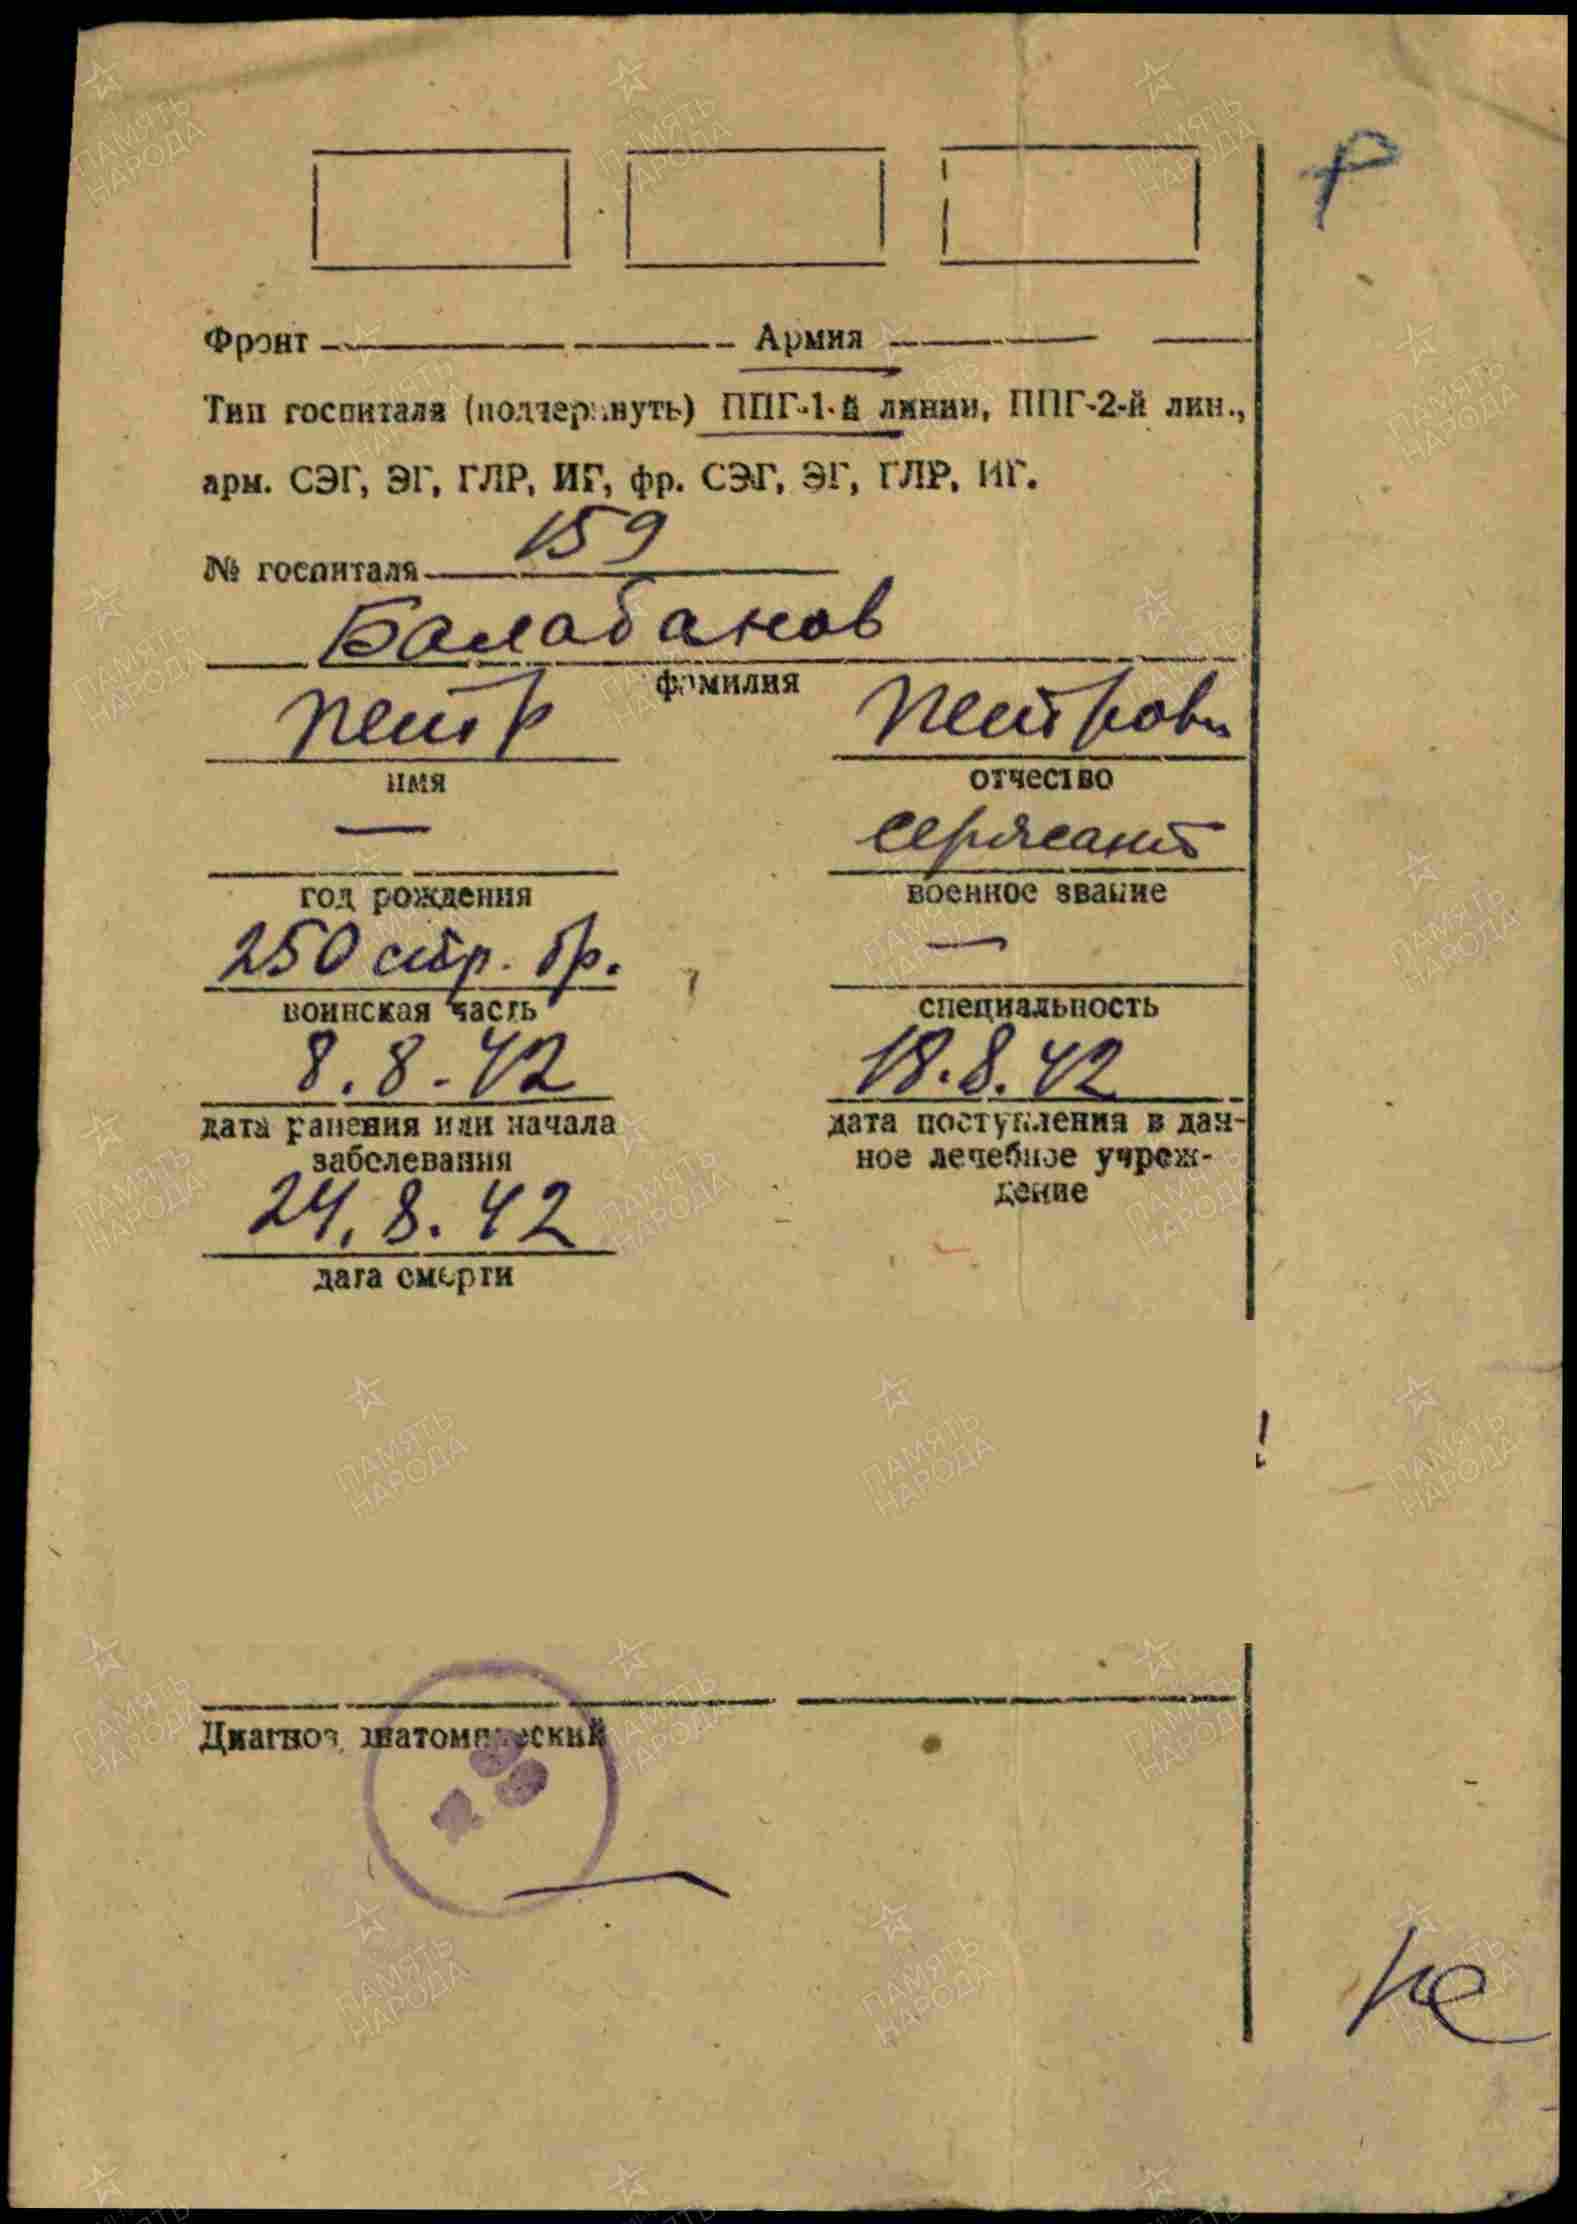 Р
Фронт Армия
Тип госпиталя (подчеркнуть) ППГ-1-й линии, ППГ-2-й лин.,
арм. СЭГ, ЭГ, ГЛР, ИГ, фр. СЭГ, ЭГ, ГЛР, ИГ.
№ госпиталя 159
Балабанов
фамилия
Петр Петрови
имя отчество
— сержант
год рождения военное звание
250 стр. бр. —
воинская часть специальность
8.8.42 18.8.42
дата ранения или начала заболевания
дата поступления в дан-
ное лечебное учреж-
дение
24.8.42
дата смерти
Диагноз анатомический
ПАМЯТЬ
НАРОДА